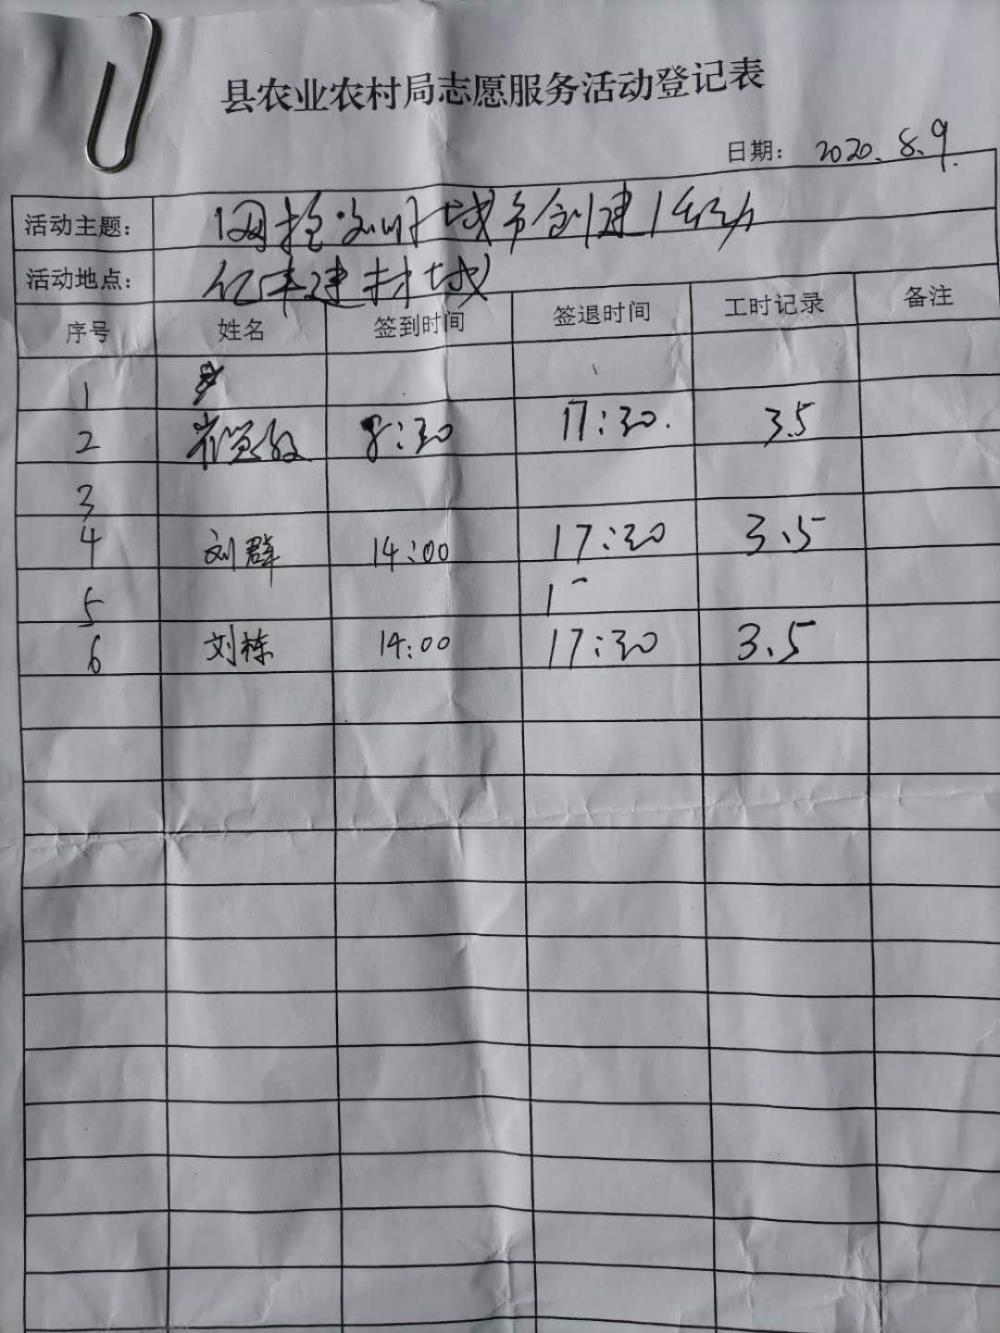 县农业农村局志愿服务活动登记表
日期: 2020.8.9.
活动主题: 城市创建活动
活动地点: 亿丰建材城
序号 姓名 签到时间 签退时间 工时记录 备注
1
2 8:30 17:30. 3.5
3
4 刘群 14:00 17:30 3.5
5
6 刘栋 14:00 17:30 3.5